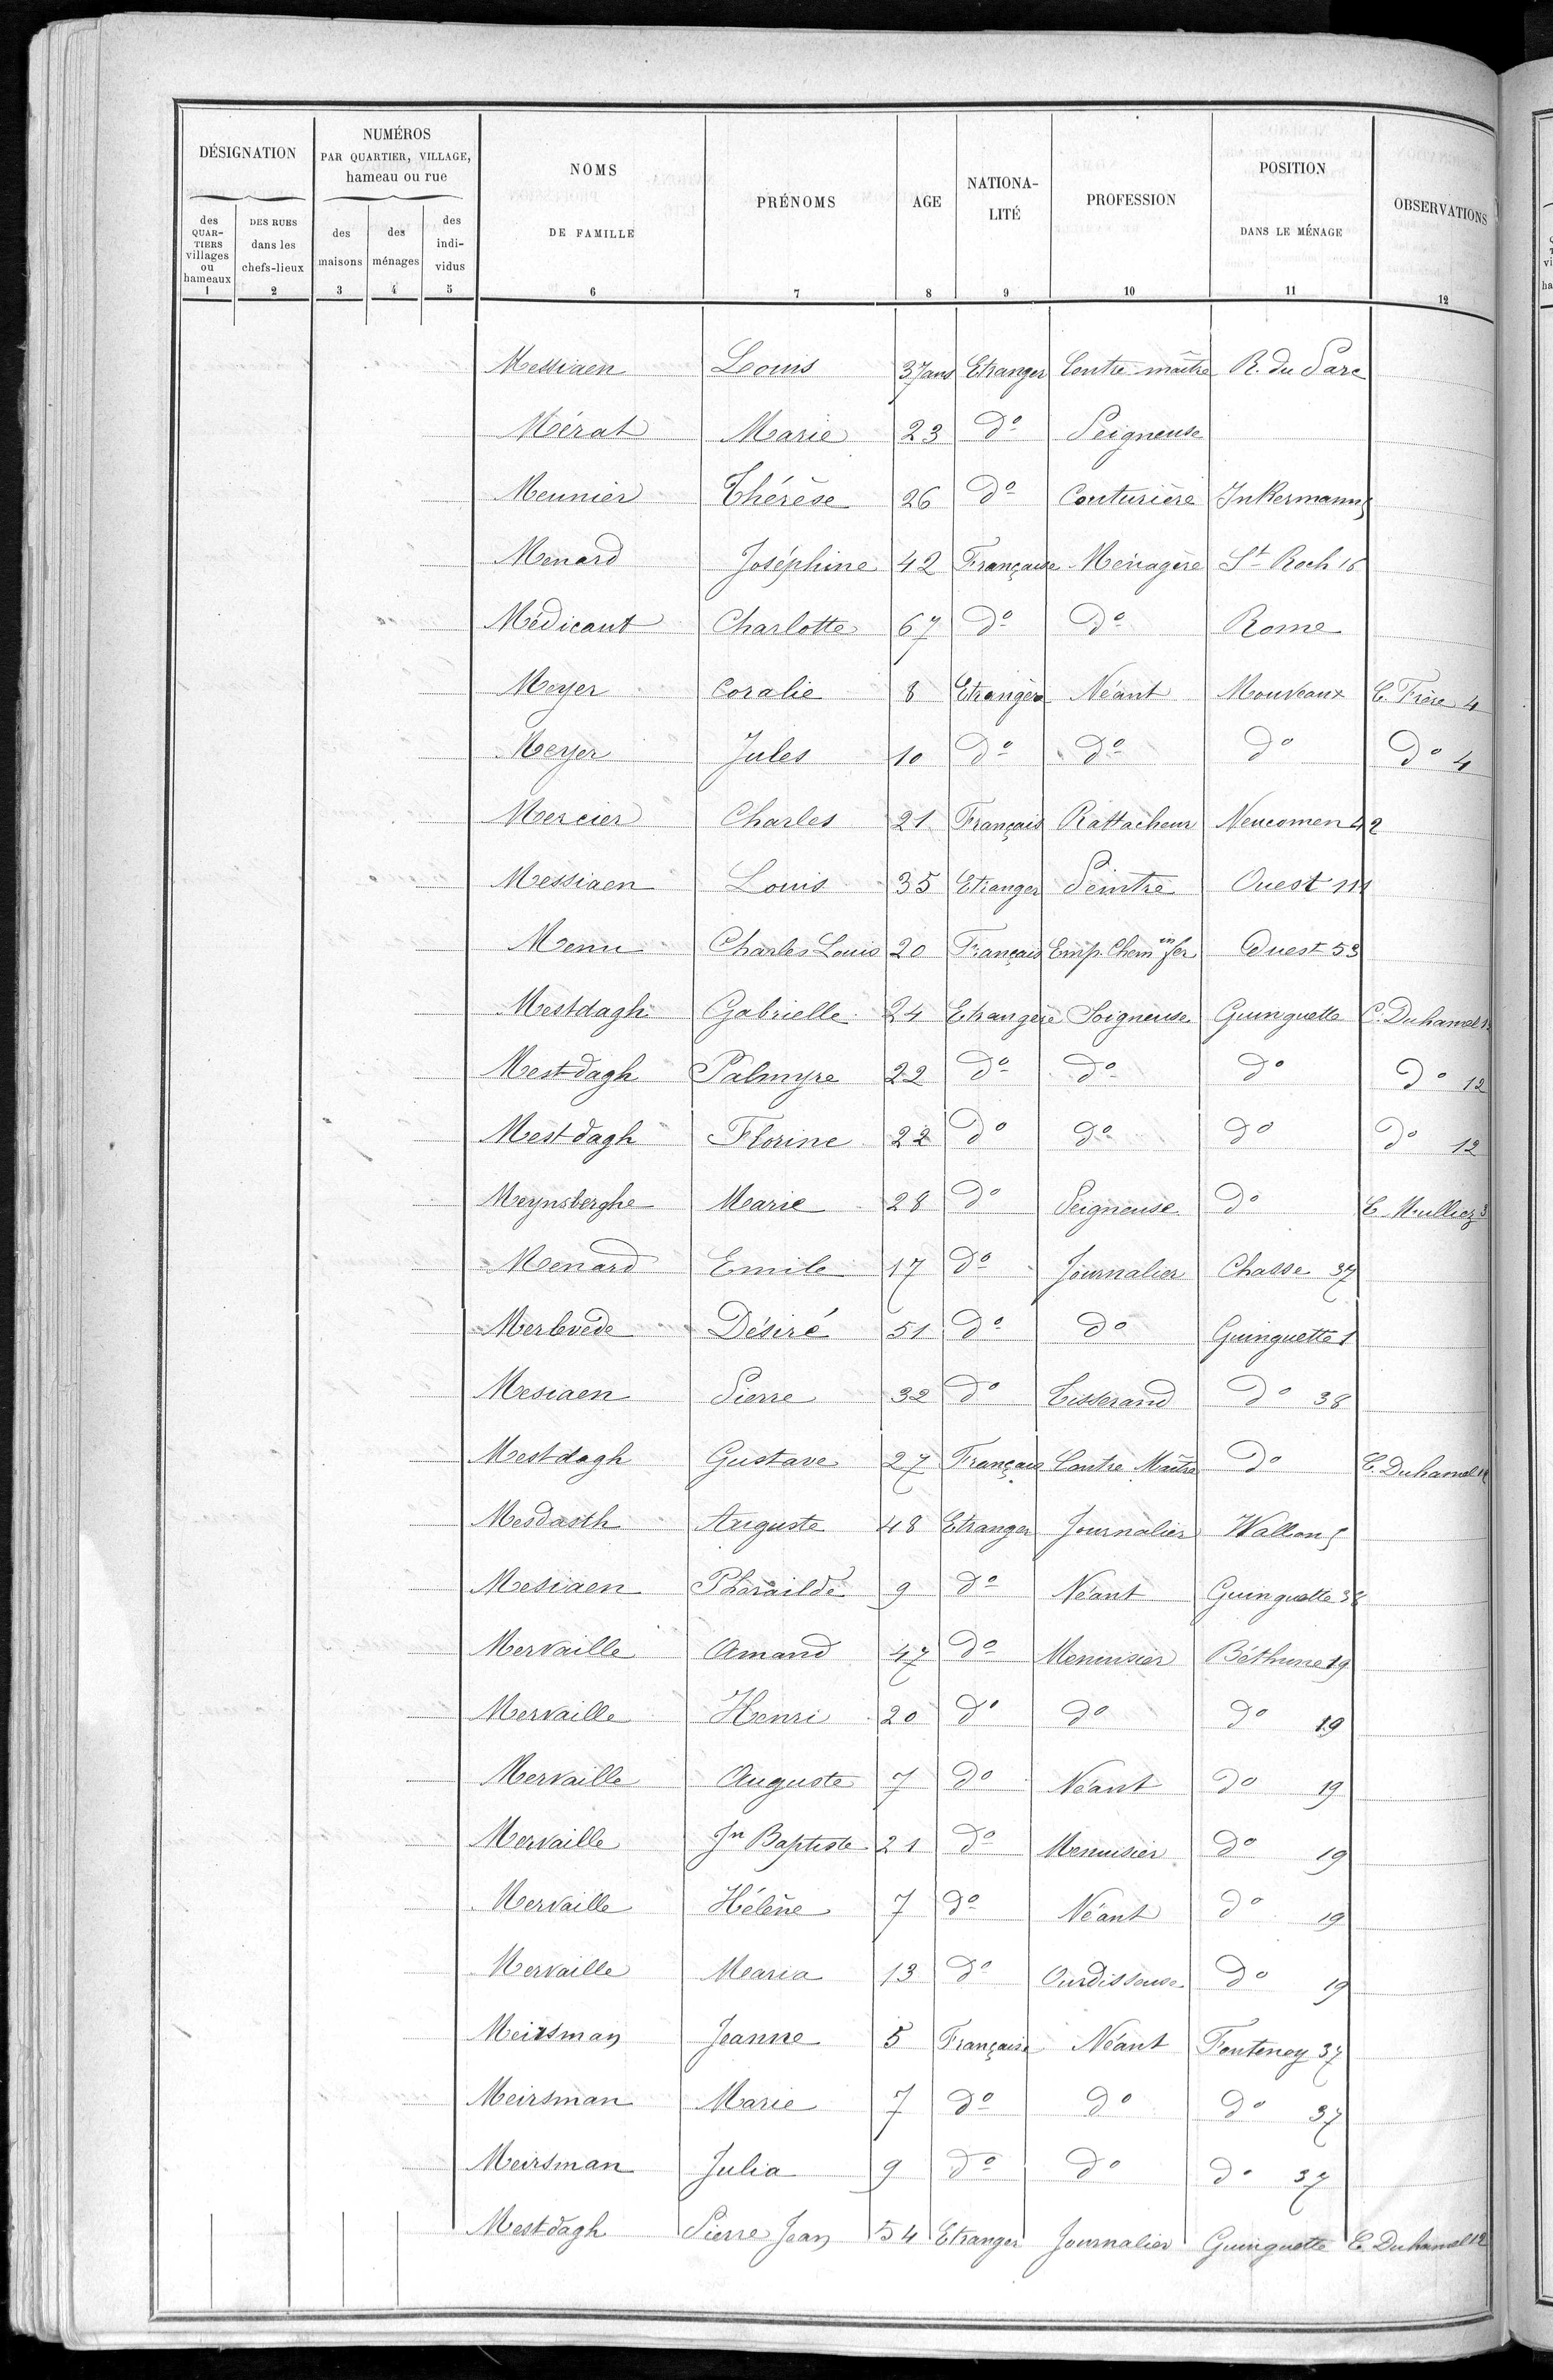 DÉSIGNATION
NUMÉROS
PAR QUARTIER, VILLAGE,
hameau ou rue
des QUARTIERS villages ou hameaux
DES RUES dans les chefs-lieux
des maisons
des ménages
des indi-vidus
NOMS DE FAMILLE
PRÉNOMS
AGE
NATIONA-LITÉ
PROFESSION
POSITION DANS LE MÉNAGE
OBSERVATIONS
1 2 3 4 5 6 7 8 9 10 11 12
Messiaen Louis 37 ans Etranger Contre maître R. du Parc
Mérat Marie 23 do Peigneuse
Meunier Thérèse 26 do Couturière Inkermann
Menard Joséphine 42 Française Ménagère St Roch 16
Médicaut Charlotte 67 do do Rome
Meyer Coralie 8 Etrangère Néant Mouveaux C. Frère 4
Meyer Jules 10 do do do do 4
Mercier Charles 21 Français Rattacheur Neucomen 42
Messiaen Louis 35 Etranger Peintre Ouest 111
Menu Charles Louis 20 Français Emp. Chemin fer Ouest 53
Mestdagh Gabrielle 24 Etrangère Soigneuse Guinguette C. Duhamel 12
Mestdagh Palmyre 22 do do do do 12
Mestdagh Florine 22 do do do do 12
Meynsberghe Marie 28 do Peigneuse do C. Mulliez 3
Menard Emile 17 do Journalier Chasse 37
Merlevède Désiré 51 do do Guinguette 1
Mesiaen Pierre 32 do Tisserand do 38
Mestdagh Gustave 27 Français Contre Maître do C. Duhamel 12
Mesdasth Auguste 48 Etranger Journalier Wallon
Mesiaen Pharaïlde 9 do Néant Guinguette 38
Mervaille Amand 47 do Menuisier Béthune 19
Mervaille Henri 20 do do do 19
Mervaille Auguste 7 do Néant do 19
Mervaille Jn Baptiste 21 do Menuisier do 19
Mervaille Hélène 7 do Néant do 19
Mervaille Maria 13 do Ourdisseuse do 19
Meirsman Jeanne 5 Française Néant Fontenoy 37
Meirsman Marie 7 do do do 37
Meirsman Julia 9 do do do 37
Mestdagh Pierre Jean 54 Etranger Journalier Guinguette C. Duhamel 12